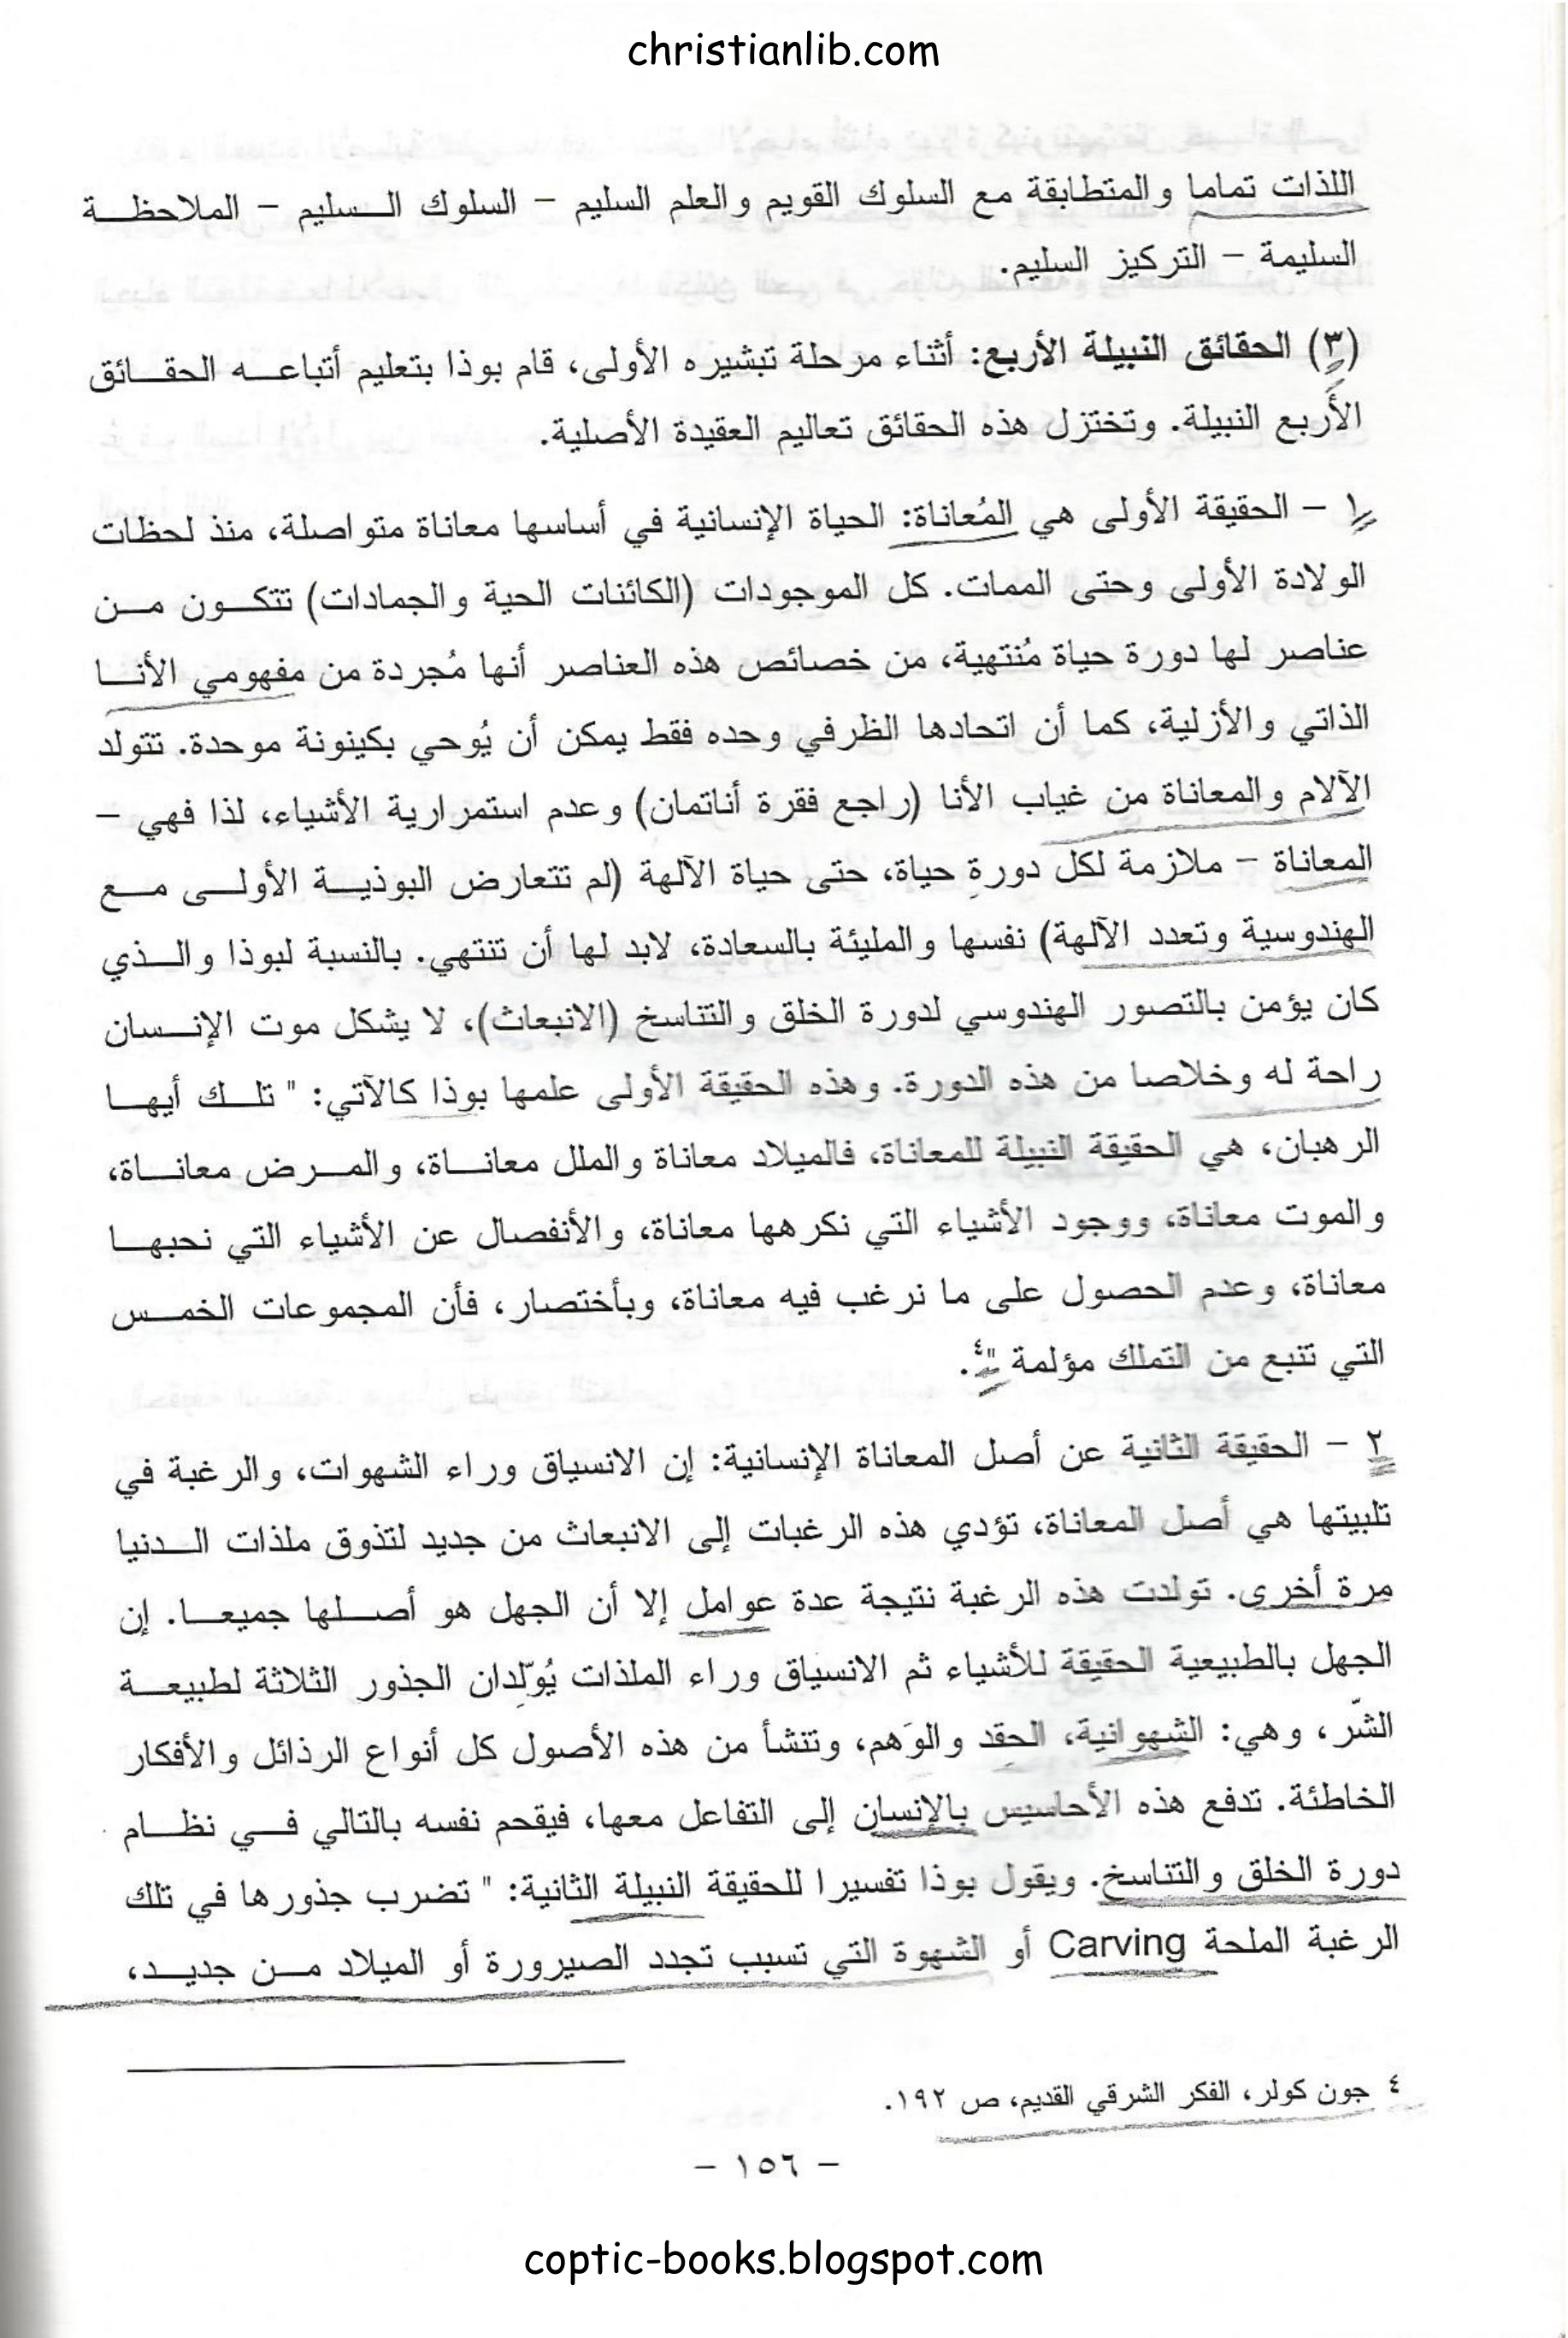 christianlib.com
اللذات تماما والمتطابقة مع السلوك القويم والعلم السليم – السلوك السليم – الملاحظة
السليمة – التركيز السليم.
(٣) الحقائق النبيلة الأربع: أثناء مرحلة تبشيره الأولى، قام بوذا بتعليم أتباعه الحقائق
الأربع النبيلة. وتختزل هذه الحقائق تعاليم العقيدة الأصلية.
١ – الحقيقة الأولى هي المُعاناة: الحياة الإنسانية في أساسها معاناة متواصلة، منذ لحظات
الولادة الأولى وحتى الممات. كل الموجودات (الكائنات الحية والجمادات) تتكون من
عناصر لها دورة حياة مُنتهية، من خصائص هذه العناصر أنها مُجردة من مفهومي الأنا
الذاتي والأزلية، كما أن اتحادها الظرفي وحده فقط يمكن أن يُوحي بكينونة موحدة. تتولد
الآلام والمعاناة من غياب الأنا (راجع فقرة أناتمان) وعدم استمرارية الأشياء، لذا فهي –
المعاناة – ملازمة لكل دورة حياة، حتى حياة الآلهة (لم تتعارض البوذية الأولى مع
الهندوسية وتعدد الآلهة) نفسها والمليئة بالسعادة، لابد لها أن تنتهي. بالنسبة لبوذا والذي
كان يؤمن بالتصور الهندوسي لدورة الخلق والتناسخ (الانبعاث)، لا يشكل موت الإنسان
راحة له وخلاصا من هذه الدورة. وهذه الحقيقة الأولى علمها بوذا كالآتي: " تلك أيها
الرهبان، هي الحقيقة النبيلة للمعاناة، فالميلاد معاناة والملل معاناة، والمرض معاناة،
والموت معاناة، ووجود الأشياء التي نكرهها معاناة، والأنفصال عن الأشياء التي نحبها
معاناة، وعدم الحصول على ما نرغب فيه معاناة، وبأختصار، فأن المجموعات الخمس
التي تنبع من التملك مؤلمة "٤.
٢ – الحقيقة الثانية عن أصل المعاناة الإنسانية: إن الانسياق وراء الشهوات، والرغبة في
تلبيتها هي أصل المعاناة، تؤدي هذه الرغبات إلى الانبعاث من جديد لتذوق ملذات الدنيا
مرة أخرى. تولدت هذه الرغبة نتيجة عدة عوامل إلا أن الجهل هو أصلها جميعا. إن
الجهل بالطبيعية الحقيقة للأشياء ثم الانسياق وراء الملذات يُولّدان الجذور الثلاثة لطبيعة
الشّر، وهي: الشهوانية، الحقد والوَهم، وتنشأ من هذه الأصول كل أنواع الرذائل والأفكار
الخاطئة. تدفع هذه الأحاسيس بالإنسان إلى التفاعل معها، فيقحم نفسه بالتالي في نظام
دورة الخلق والتناسخ. ويقول بوذا تفسيرا للحقيقة النبيلة الثانية: " تضرب جذورها في تلك
الرغبة الملحة Carving أو الشهوة التي تسبب تجدد الصيرورة أو الميلاد من جديد،
٤ جون كولر، الفكر الشرقي القديم، ص ١٩٢.
– ١٥٦ –
coptic-books.blogspot.com